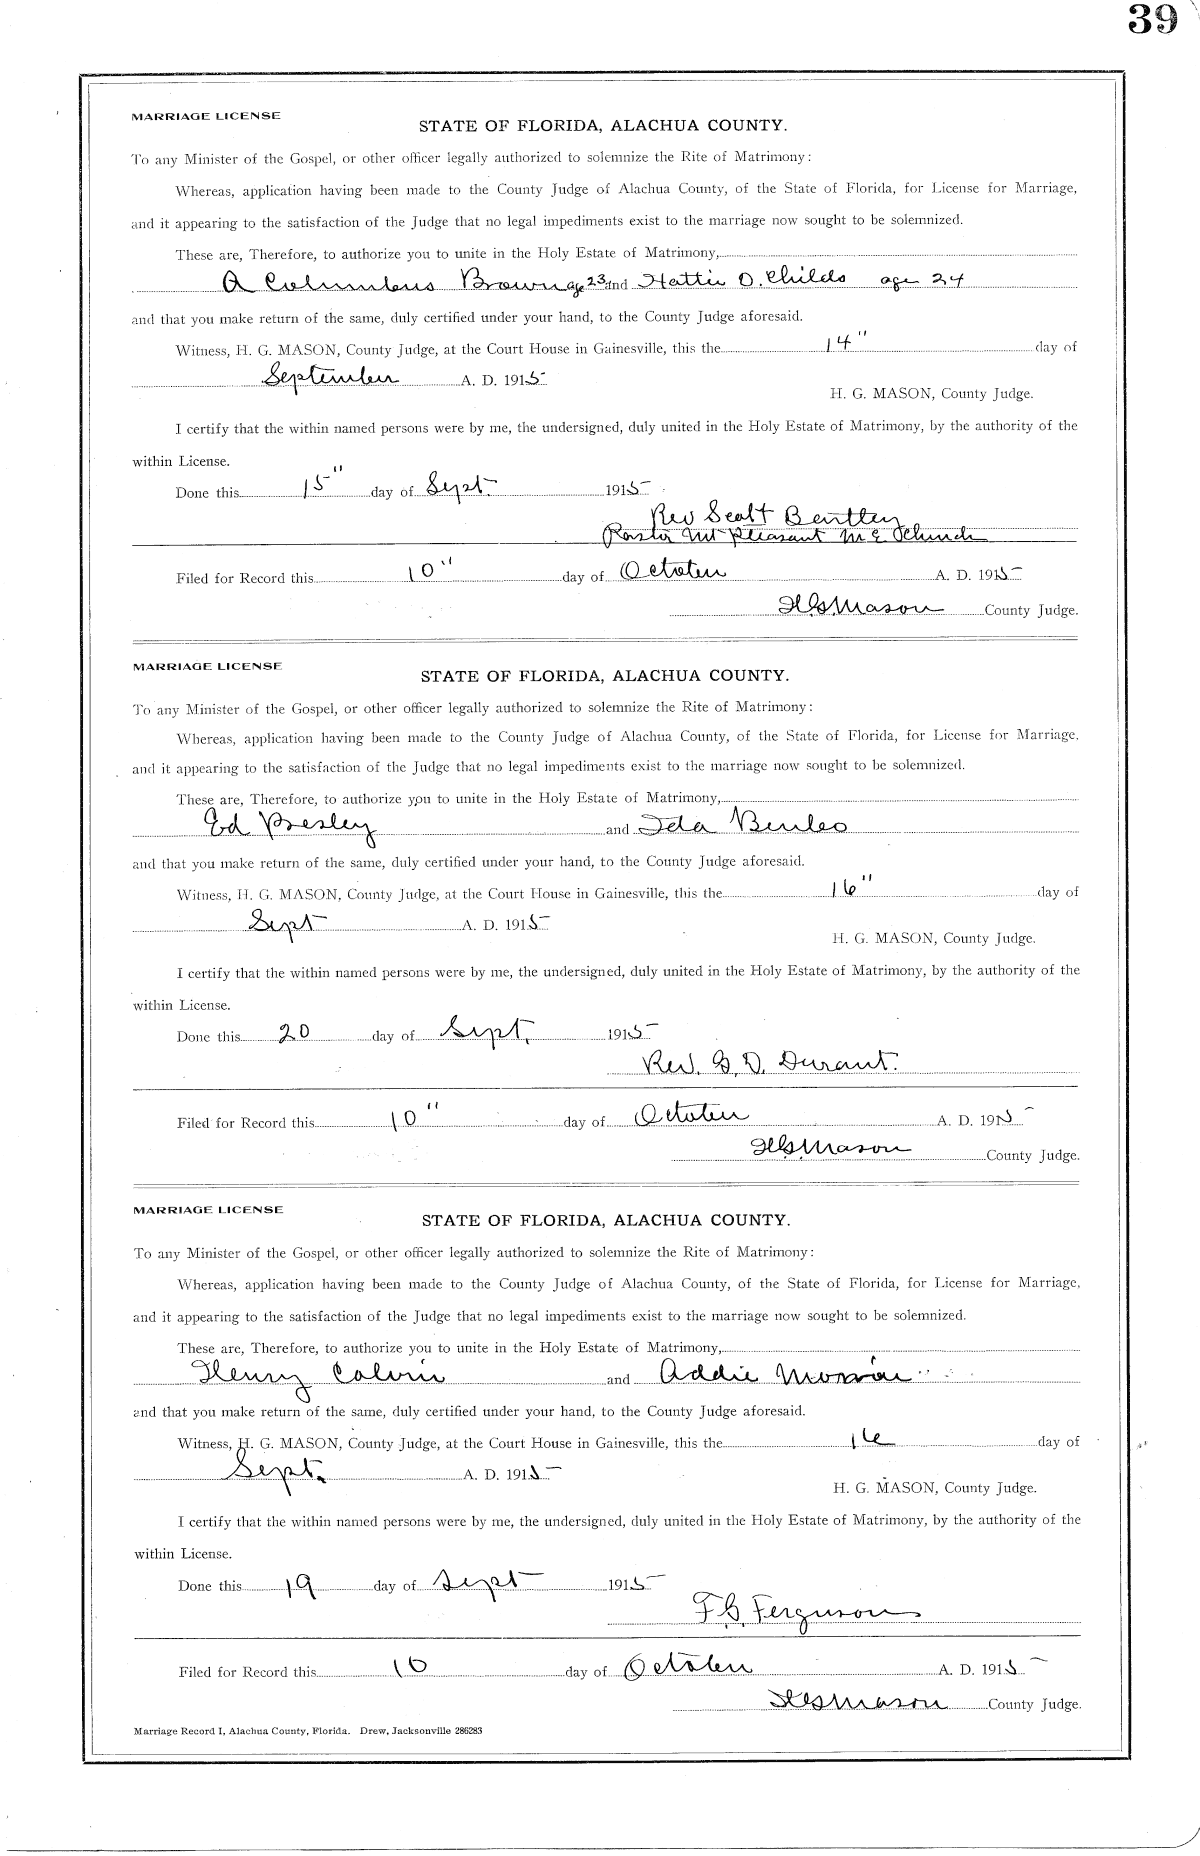 39
MARRIAGE LICENSE
STATE OF FLORIDA, ALACHUA COUNTY.
To any Minister of the Gospel, or other officer legally authorized to solemnize the Rite of Matrimony:
Whereas, application having been made to the County Judge of Alachua County, of the State of Florida, for License for Marriage,
and it appearing to the satisfaction of the Judge that no legal impediments exist to the marriage now sought to be solemnized.
These are, Therefore, to authorize you to unite in the Holy Estate of Matrimony,
A Columbus Brown age 23 and Hattie D. Childs age 24
and that you make return of the same, duly certified under your hand, to the County Judge aforesaid.
Witness, H. G. MASON, County Judge, at the Court House in Gainesville, this the 14" day of
September A. D. 1915
H. G. MASON, County Judge.
I certify that the within named persons were by me, the undersigned, duly united in the Holy Estate of Matrimony, by the authority of the
within License.
Done this 15" day of Sept. 1915
Rev Scott Bentley
Pastor Mt Pleasant M E Church
Filed for Record this 10" day of October A. D. 1915
H.G. Mason County Judge.
MARRIAGE LICENSE
STATE OF FLORIDA, ALACHUA COUNTY.
To any Minister of the Gospel, or other officer legally authorized to solemnize the Rite of Matrimony:
Whereas, application having been made to the County Judge of Alachua County, of the State of Florida, for License for Marriage,
and it appearing to the satisfaction of the Judge that no legal impediments exist to the marriage now sought to be solemnized.
These are, Therefore, to authorize you to unite in the Holy Estate of Matrimony,
Ed Presley and Ida
and that you make return of the same, duly certified under your hand, to the County Judge aforesaid.
Witness, H. G. MASON, County Judge, at the Court House in Gainesville, this the 16" day of
Sept A. D. 1915
H. G. MASON, County Judge.
I certify that the within named persons were by me, the undersigned, duly united in the Holy Estate of Matrimony, by the authority of the
within License.
Done this 20 day of Sept. 1915
Rev. G. D. Durant.
Filed for Record this 10" day of October A. D. 1915
H.G. Mason County Judge.
MARRIAGE LICENSE
STATE OF FLORIDA, ALACHUA COUNTY.
To any Minister of the Gospel, or other officer legally authorized to solemnize the Rite of Matrimony:
Whereas, application having been made to the County Judge of Alachua County, of the State of Florida, for License for Marriage,
and it appearing to the satisfaction of the Judge that no legal impediments exist to the marriage now sought to be solemnized.
These are, Therefore, to authorize you to unite in the Holy Estate of Matrimony,
Henry Calvin and Addie
and that you make return of the same, duly certified under your hand, to the County Judge aforesaid.
Witness, H. G. MASON, County Judge, at the Court House in Gainesville, this the 16 day of
Sept. A. D. 1915
H. G. MASON, County Judge.
I certify that the within named persons were by me, the undersigned, duly united in the Holy Estate of Matrimony, by the authority of the
within License.
Done this 19 day of Sept 1915
F.G. Ferguson
Filed for Record this 10 day of October A. D. 1915
H.G. Mason County Judge.
Marriage Record I, Alachua County, Florida. Drew, Jacksonville 286283